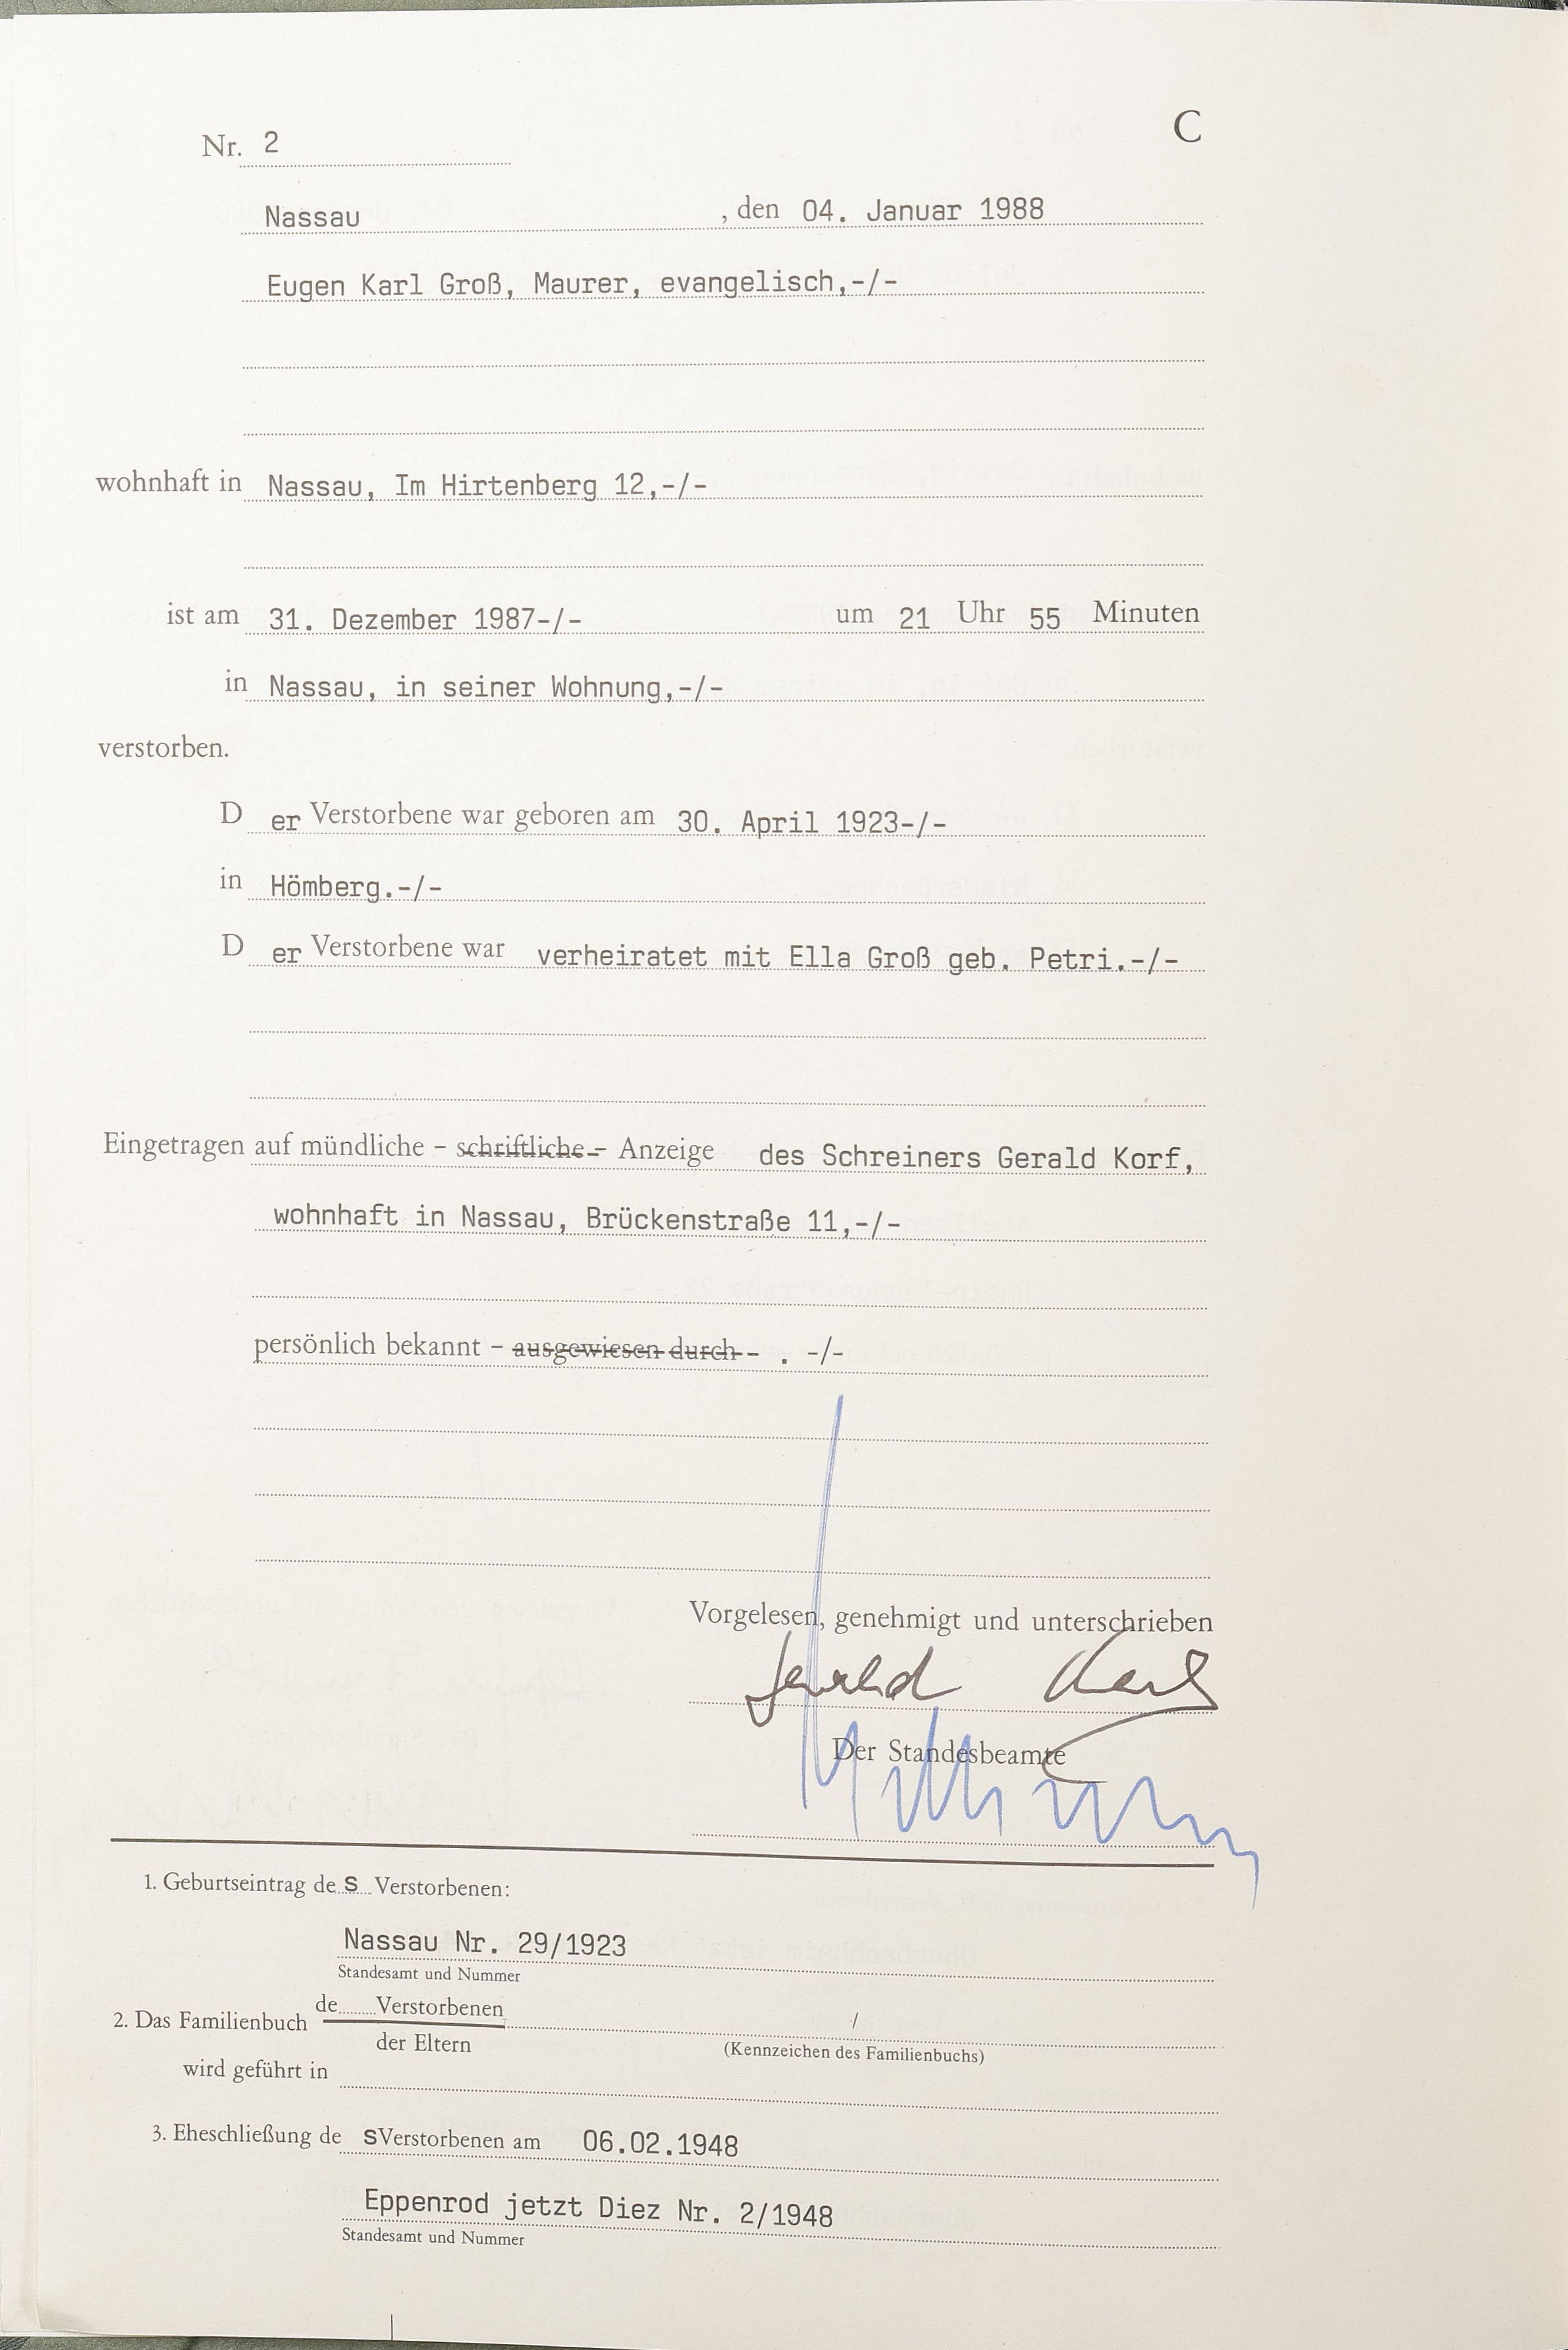 C
Nr. 2
Nassau , den 04. Januar 1988
Eugen Karl Groß, Maurer, evangelisch,-/-
wohnhaft in Nassau, Im Hirtenberg 12,-/-
ist am 31. Dezember 1987-/- um 21 Uhr 55 Minuten
in Nassau, in seiner Wohnung,-/-
verstorben.
D er Verstorbene war geboren am 30. April 1923-/-
in Hömberg.-/-
D er Verstorbene war verheiratet mit Ella Groß geb. Petri.-/-
Eingetragen auf mündliche – schriftliche – Anzeige des Schreiners Gerald Korf,
wohnhaft in Nassau, Brückenstraße 11,-/-
persönlich bekannt – ausgewiesen durch - . -/-
Vorgelesen, genehmigt und unterschrieben
Gerald Korf
Der Standesbeamte
1. Geburtseintrag de s Verstorbenen:
Nassau Nr. 29/1923
Standesamt und Nummer
de Verstorbenen
2. Das Familienbuch /
der Eltern (Kennzeichen des Familienbuchs)
wird geführt in
3. Eheschließung de s Verstorbenen am 06.02.1948
Eppenrod jetzt Diez Nr. 2/1948
Standesamt und Nummer